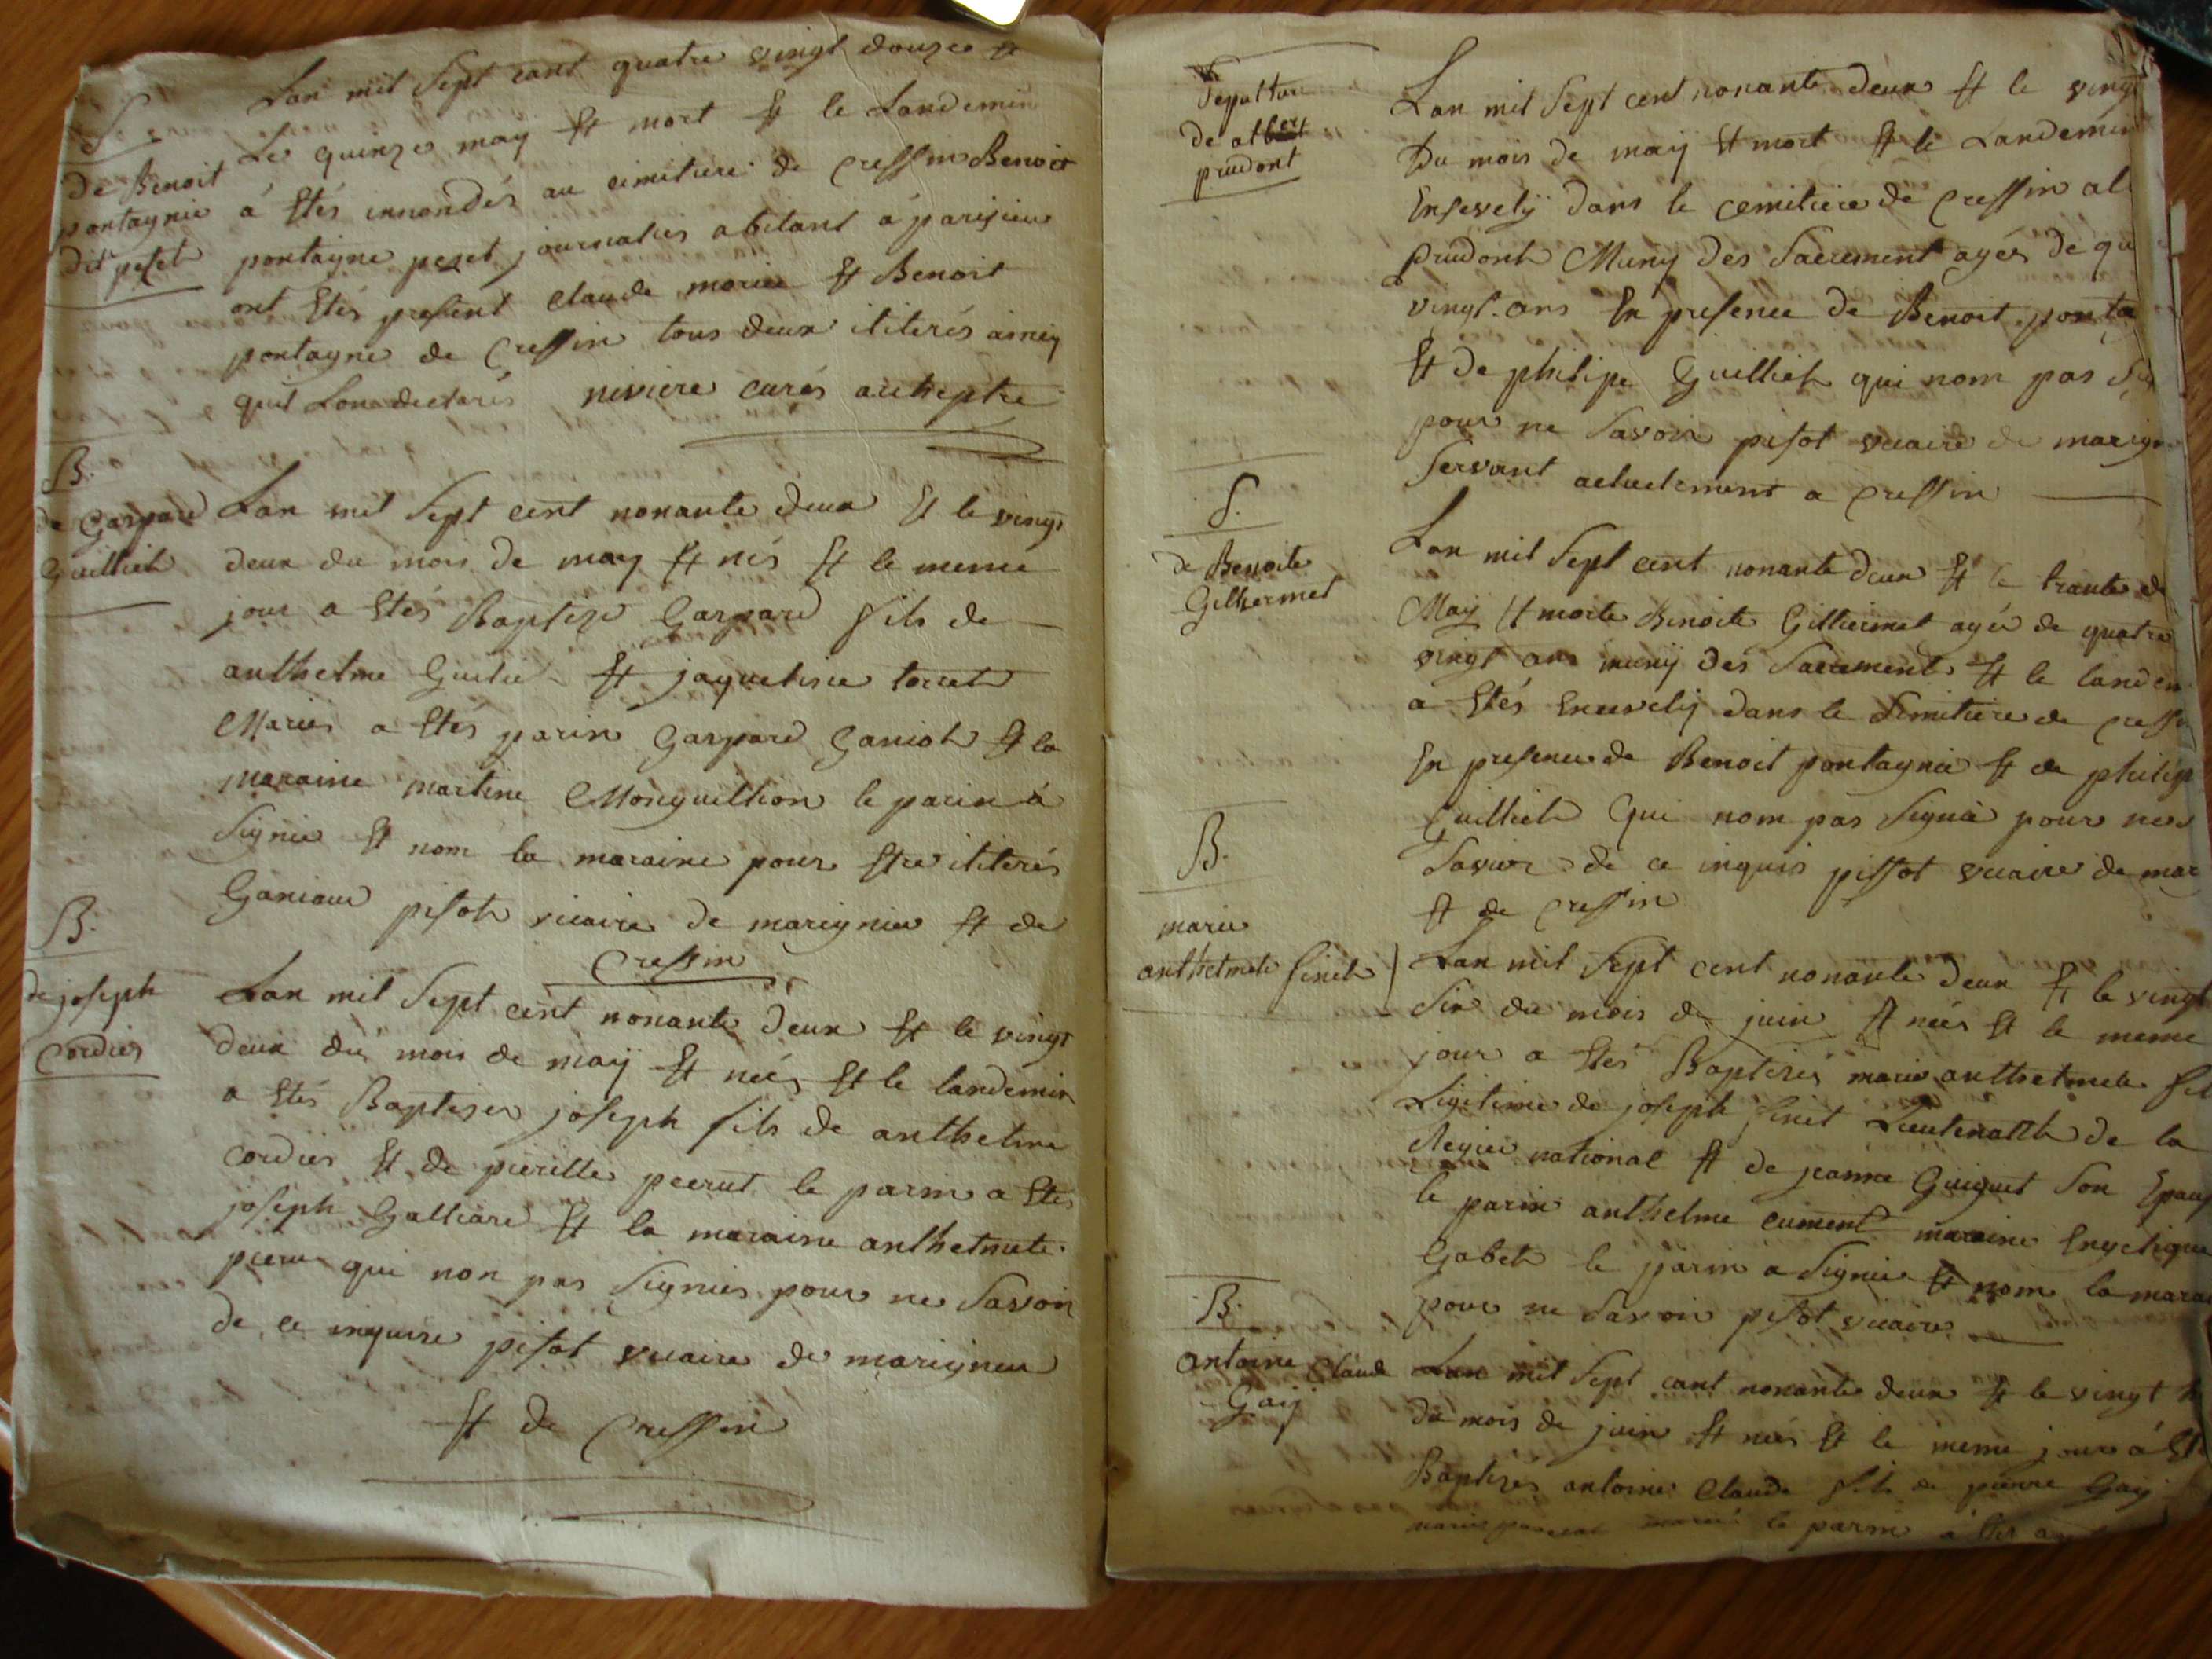 S
de Benoit
pontagnie
dit peset
Lan mil Sept cant quatre vingt douze et
Le quinze may Et mort Et le Landemin
á Etés innondés au cimitiere de Cressin Benoit
pontagne peset journalies abitant á parisieu
ont Etés present Claude morin Et Benoit
pontagne de Cressin tous deux iliterés ainsy
quil Lon declarés riviere curés
B.
de Gaspard
Guilliet
Lan mil Sept cent nonante deux Et le vingt
deux du mois de may Et nés Et le meme
jour a Etés Baptize Gaspard fils de
anthelme Guiliet Et jaqueline torret
Mariés a Etés parin Gaspard Ganiot Et la
maraine martine Monguillion le parin á
Signie Et nom la maraine pour Etre iliterés
Ganiaux pisot vicaire de marignieu Et de
Cressin
B.
de joseph
Cordier
Lan mil Sept cent nonante deux Et le vingt
deux du mois de maÿ Et neés Et le landemin
a Etés Baptisez joseph fils de anthelme
Cordier Et de pierille peerut le parin a Ete
joseph Galliard Et la maraine anthelmete
qui non pas Signies pour ne Savoir
de ce inquire pisot vicaire de marignieu
Et de Cressin
Sepulture
de albert
prudont
Lan mil Sept cent nonante deux Et le vingt
Du mois de maÿ Et mort Et le Landemin
Ensevelÿ dans le cemitiere de Cressin al
prudont Muny des Sacrement agés de qu
vingt ans En presence de Benoit ponta
Et de philipe Guilliet qui nom pas Sig
pour ne Savoir pisot vicaire de marign
Servant actuelement a Cressin
S.
de Benoite
Gilliermet
Lan mil Sept cent nonante deux Et le trante de
Maÿ Et morte Benoite Gilliermet agée de quatre
vingt ans munÿ des Sacrement Et le landem
a Etés Encevelÿ dans le Simitiere de Cressi
En presence de Benoit pontagnie Et de philip
Guilliet Qui nom pas Signié pour ne
Savoir de ce inquis pissot vicaire de mar
Et de Cressin
B.
marie
anthelmete finet
Lan mil Sept cent nonante deux Et le vingt
Six du mois de juin Et neés Et le meme
jour a Etés Baptisés marie anthelmete fil
Legitime de joseph finet Lieutenant de la
Regie national Et de jeanne Guiguet Son Epau
le parin anthelme cument maraine
Gabet le parin a Signie Et nom la marai
pour ne Savoir pisot vicaire
B.
antoine Claude
Gaÿ
Lan mil Sept cant nonante deux Et le vingt
du mois de juin Et neés Et le meme jour á Et
Baptisés antoine Claude fils de pierre Gaÿ
le parin á Etés